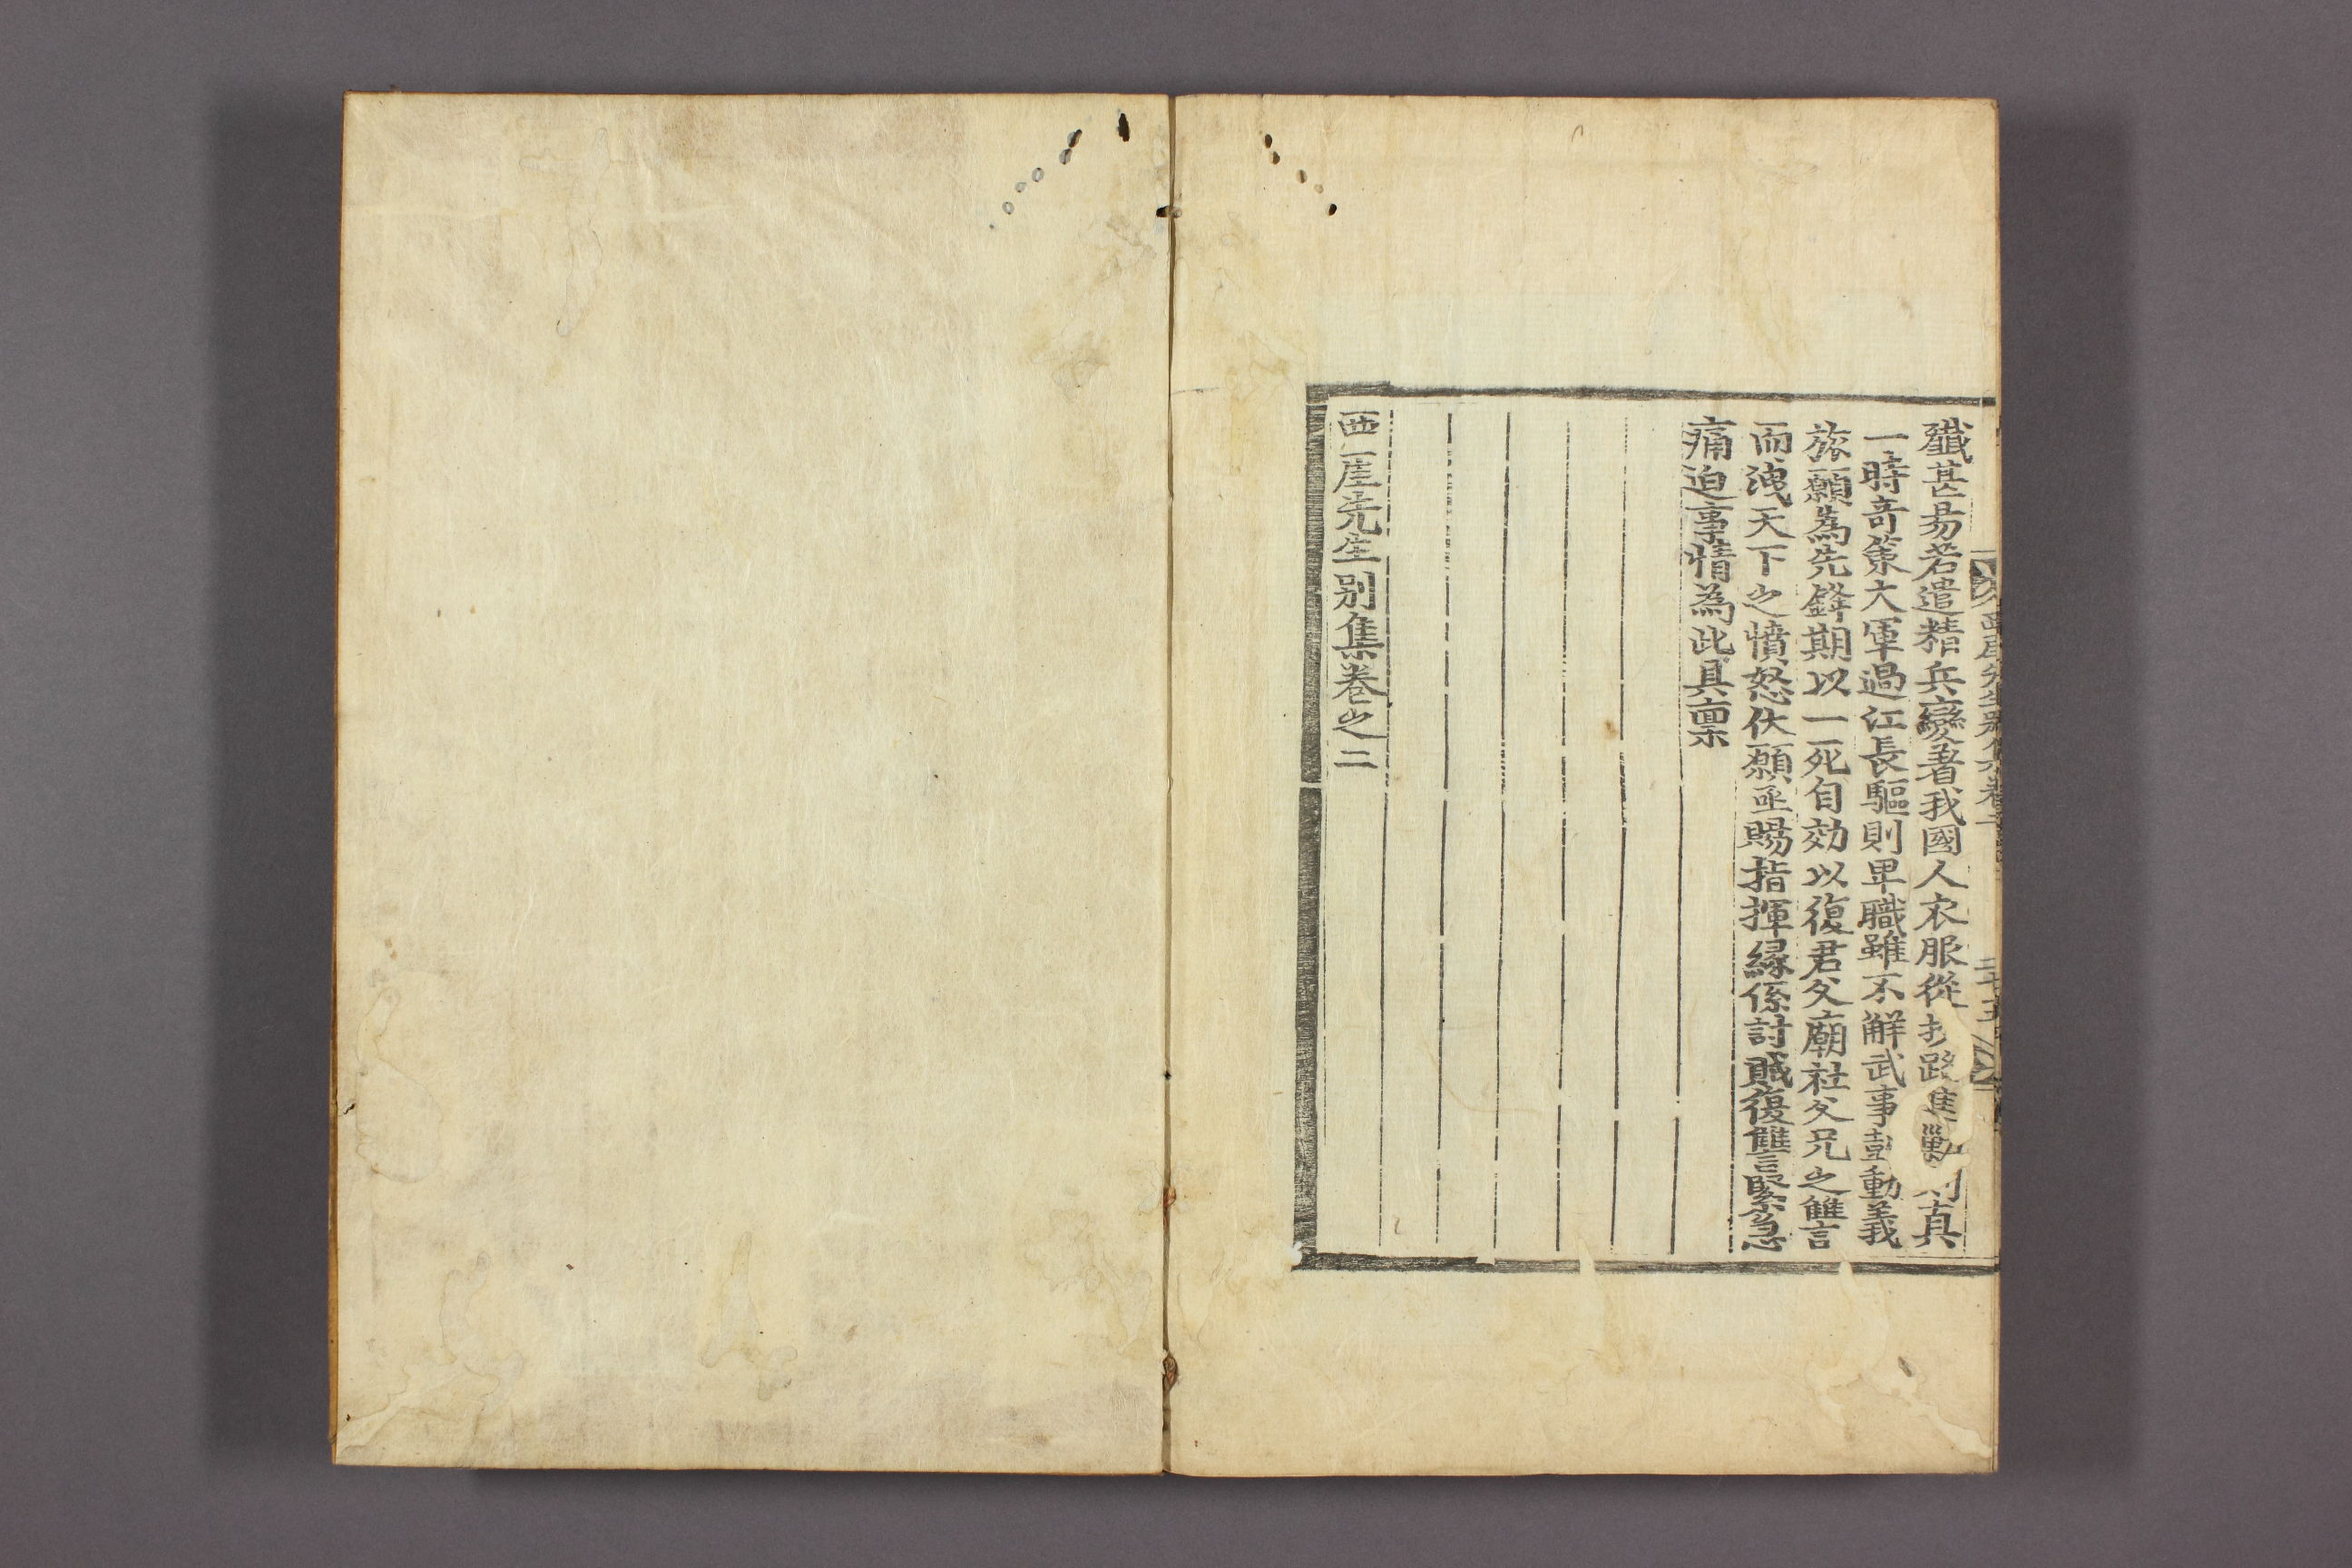 西厓先生別集卷二
殲甚易若遣精兵變著我國人衣服從路進勦則真
一時奇策大軍過江長驅則卑職雖不解武事壴動義
旅願為先鋒期以一死自効以復君父廟社父兄之讎
而洩天下之憤怒伏願亟賜指揮縁係討賊復讎緊急
痛迫事情為此具稟
西厓先生別集卷之二